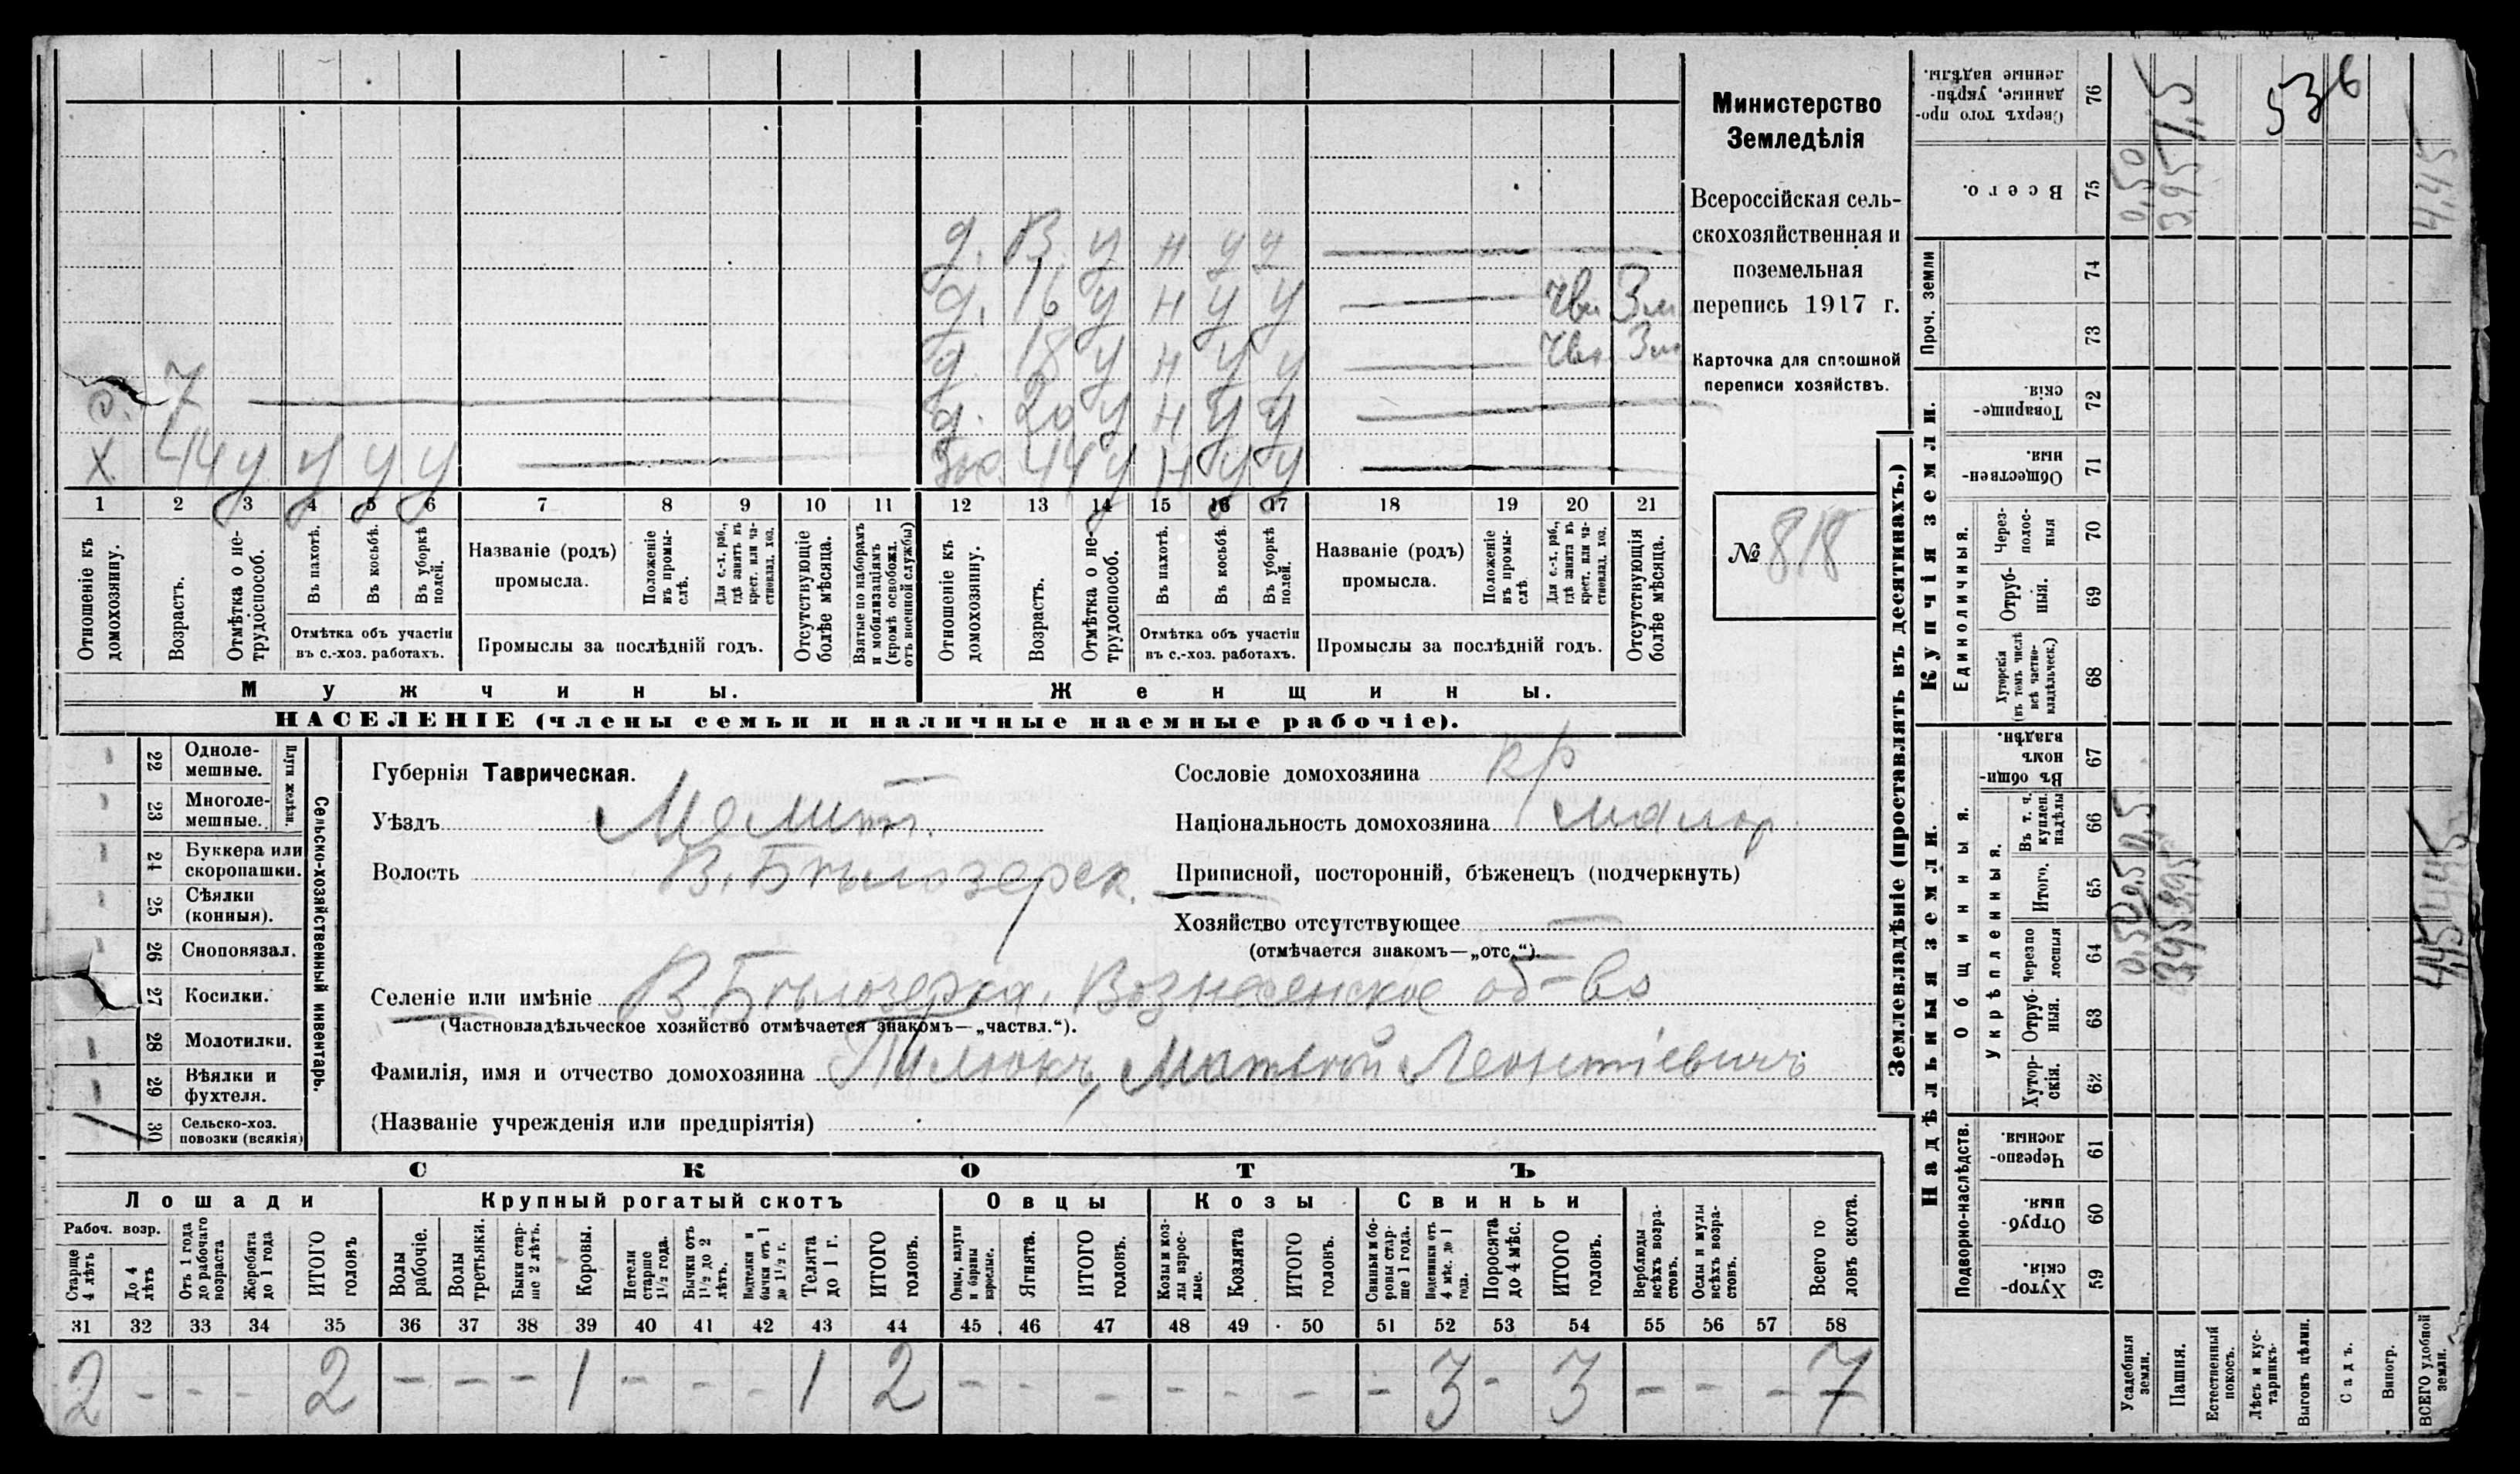 Министерство
Земледѣлія
Всероссійская сель-
скохозяйственная и
поземельная
перепись 1917 г.
Карточка для сплошной
переписи хозяйствъ.
№ 818
д. 13 у н у у
д. 16 у н у у
д. 18 у н у у
д. 20 у н у у
жо. 44 у н у у
7
х 44 у у у у
1 2 3 4 5 6 7 8 9 10 11 12 13 14 15 16 17 18 19 20 21
Отношеніе къ домохозяину.
Возрастъ.
Отмѣтка о не-трудоспособ.
Въ пахотѣ.
Въ косьбѣ.
Въ уборкѣ полей.
Отмѣтка объ участіи
въ с.-хоз. работахъ.
Названіе (родъ)
промысла.
Положеніе въ промы-слѣ.
Для с.-х. раб., гдѣ занятъ въ крест. или ча-стновлад. хоз.
Промыслы за послѣдній годъ.
Отсутствующіе болѣе мѣсяца.
Взятые по наборамъ и мобилизаціямъ (кромѣ освобожд. отъ военной службы)
Отношеніе къ домохозяину.
Возрастъ.
Отмѣтка о не-трудоспособ.
Въ пахотѣ.
Въ косьбѣ.
Въ уборкѣ полей.
Отмѣтка объ участіи
въ с.-хоз. работахъ.
Названіе (родъ)
промысла.
Положеніе въ промы-слѣ.
Для с.-х. раб., гдѣ занята въ крест. или ча-стновлад. хоз.
Промыслы за послѣдній годъ.
Отсутствующія болѣе мѣсяца.
Мужчины.
Женщины.
НАСЕЛЕНІЕ (члены семьи и наличные наемные рабочіе).
Сельско-хозяйственный инвентарь.
Плуги желѣзн.
22 Одноле-мешные.
23 Многоле-мешные.
24 Буккера или скоропашки.
25 Сѣялки (конныя).
26 Сноповязал.
27 Косилки.
28 Молотилки.
29 Вѣялки и фухтеля.
30 Сельско-хоз. повозки (всякія) 1
Губернія Таврическая.
Уѣздъ Мелит.
Волость В. Бѣлозерск.
Селеніе или имѣніе В Бѣлозерка. Вознесенское об-во
(Частновладѣльческое хозяйство отмѣчается знакомъ—„частвл.“).
Фамилія, имя и отчество домохозяина Пилюкъ, Матвѣй Леонтіевичъ
(Названіе учрежденія или предпріятія)
Сословіе домохозяина кр
Національность домохозяина малор.
Приписной, посторонній, бѣженецъ (подчеркнуть)
Хозяйство отсутствующее —
(отмѣчается знакомъ—„отс.“).
СКОТЪ
Лошади
Крупный рогатый скотъ
Овцы
Козы
Свиньи
Рабоч. возр.
Старше 4 лѣтъ
До 4 лѣтъ
Отъ 1 года до рабочаго возраста
Жеребята до 1 года
ИТОГО головъ.
Волы рабочіе.
Волы третьяки.
Быки стар-ше 2 лѣтъ.
Коровы.
Нетели старше 1½ года.
Бычки отъ 1½ до 2 лѣтъ.
Подтелки и бычки отъ 1 до 1½ г.
Телята до 1 г.
ИТОГО головъ.
Овцы, валухи и бараны взрослые.
Ягнята.
ИТОГО головъ.
Козы и коз-лы взрос-лые.
Козлята
ИТОГО головъ.
Свиньи и бо-ровы стар-ше 1 года.
Подсвинки отъ 4 мѣс. до 1 года.
Поросята до 4 мѣс.
ИТОГО головъ.
Верблюды всѣхъ возра-стовъ.
Ослы и мулы всѣхъ возра-стовъ.
Всего го ловъ скота.
31 32 33 34 35 36 37 38 39 40 41 42 43 44 45 46 47 48 49 50 51 52 53 54 55 56 57 58
2 - - - 2 - - - 1 - - - 1 2 - - - - - - - 3 - 3 - - - 7
Землевладѣніе (проставлять въ десятинахъ.)
Надѣльныя земли.
Купчія земли.
Проч. земли
Сверхъ того про-данные, укрѣп-ленные надѣлы. 76
Всего. 75
74
73
Товарище-скія. 72
Обществен-ныя. 71
Единоличныя.
Через-полос-ныя 70
Отруб-ныя. 69
Хуторскія (въ томъ числѣ всѣ частно-владѣльческ.) 68
Общинныя.
Въ общи-номъ владѣн. 67
Укрѣпленныя.
Въ т. ч. куплен. надѣлы 66
Итого. 65
Черезпо лосныя 64
Отруб-ныя. 63
Хутор-скія. 62
Подворно-наслѣдств.
Черезпо-лосныя 61
Отруб-ныя. 60
Хутор-скія. 59
Усадебныя земли.
Пашня.
Естественный покосъ.
Лѣсъ и кус-тарникъ.
Выгонъ цѣлин.
Садъ.
Виногр.
ВСЕГО удобной земли.
0,50
3,95
4,45
1,5
536